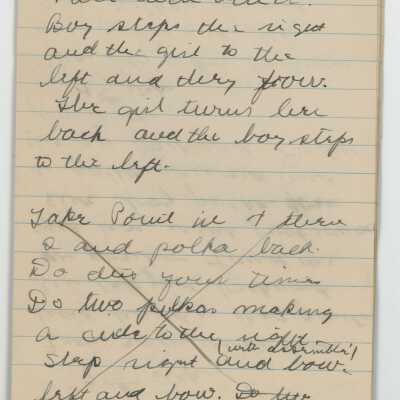 Face each other.
Boy steps the right
and the girl to the
left and they bow.
The girl turns her
back and the boy steps
to the left.
Take Point in & then
2 and polka back.
Do this four times
Do two polkas making
a circle to the right.
(with assemble!)
Step right and bow.
left and bow. Do the